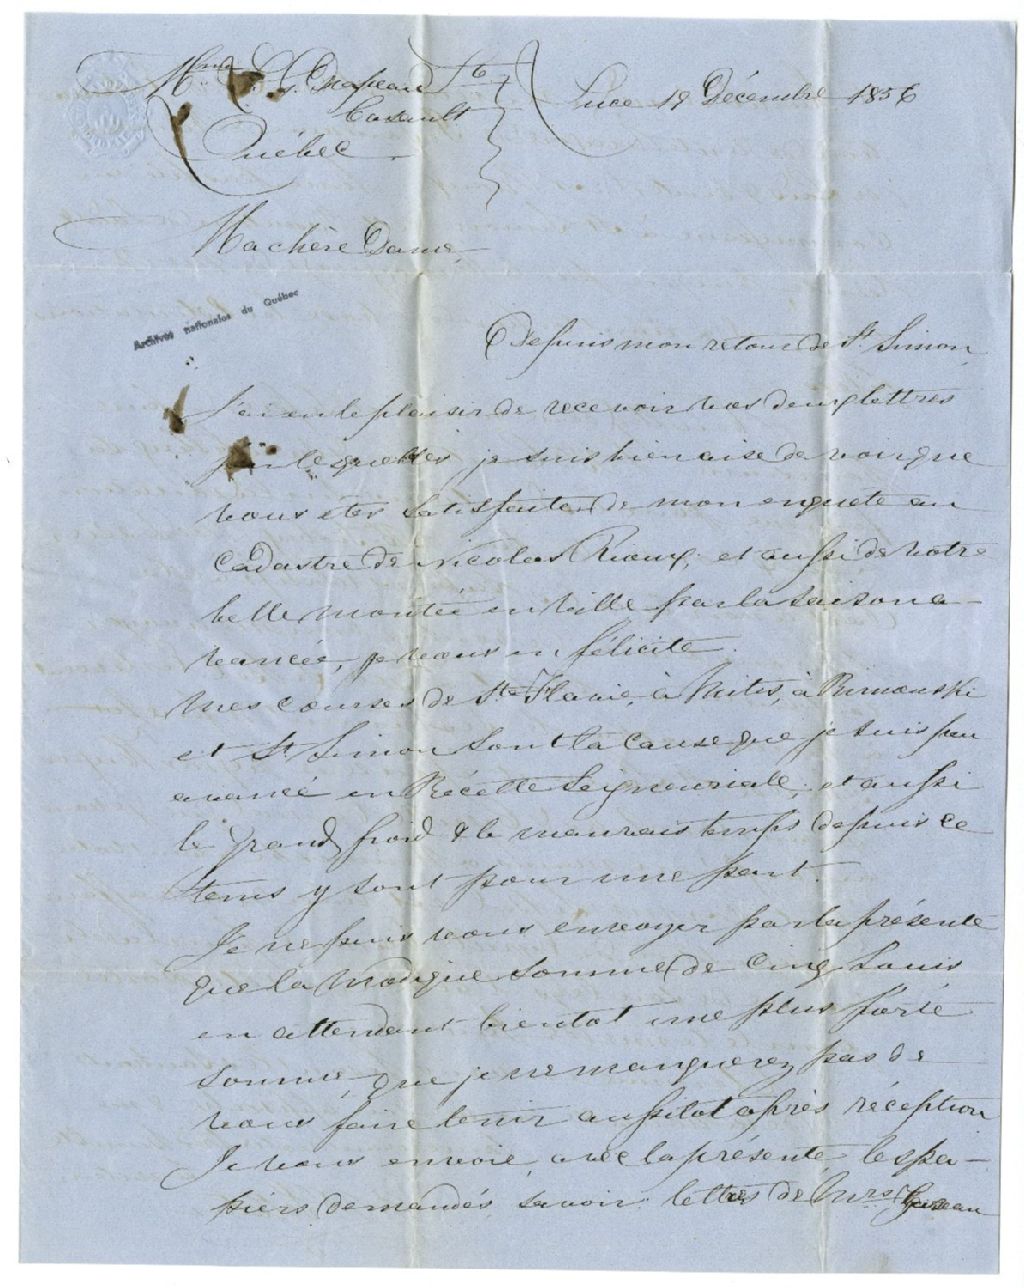 Mme L. Drapeau Ste Luce 19 Décembre 1856
Casault
Québec
Ma chère Dame,
Archives nationales du Québec
Depuis mon retour de St Simon
J'ai eu le plaisir de recevoir vos deux lettres
par lesquelles je suis bien aise de voir que
vous etes satisfaites de mon enquete au
Cadastre de Nicolas Rioux, et aussi de votre
belle montée en ville par la saison a-
vancée, je vous en félicite.
Mes courses de Ste Flavie, à Mitis, à Rimouski
et St Simon sont la cause que je suis peu
avancé en Récette Seigneuriale, et aussi
le grand froid & le mauvais temps depuis ce
tems y sont pour une part.
Je ne puis vous envoyer par la présente
que la modique somme de Cinq Louis
en attendant bientot une plus forte
somme que je ne manquerez pas de
vous faire tenir aussitot après réception
Je vous envoie avec la présente les pa-
piers demandés, savoir lettres de Mrs